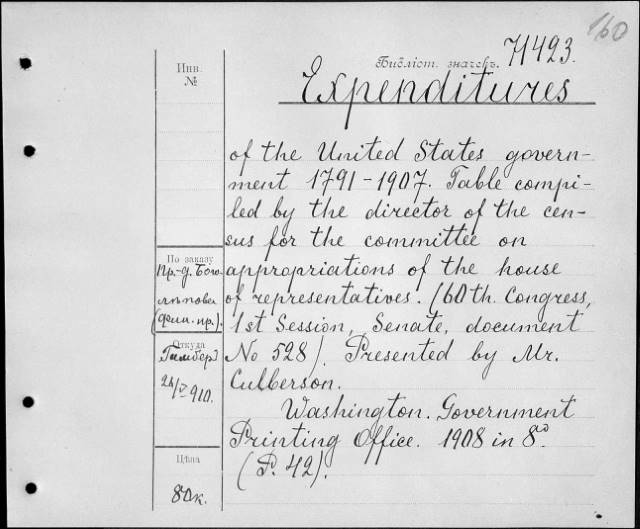 160
Библіот. значекъ. 71423.
Expenditures
of the United States govern-
ment 1791-1907. Table compi-
led by the director of the cen-
sus for the committee on
appropriations of the house
of representatives. (60th. Congress,
1st Session, Senate, document
No 528). Presented by Mr.
Culberson.
Washington. Government
Printing Office. 1908 in 8º.
(P. 42).
Инв.
№
По заказу
Пр.-д. Бого-
лѣпова
(Фин. пр.).
Откуда
910.
Цѣна
80к.